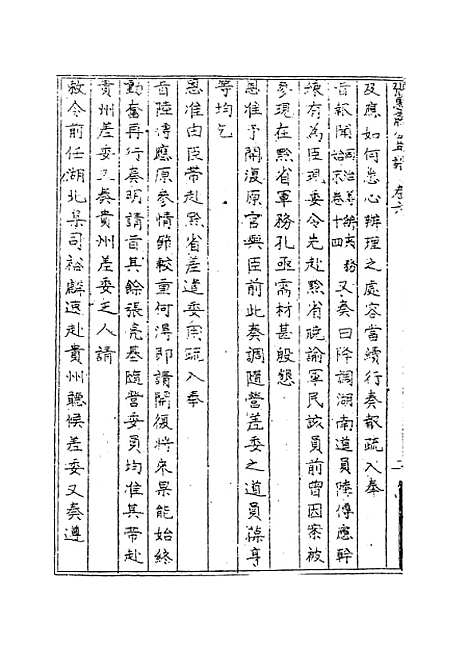 張惠肅公年譜 卷六
及應如何悉心辦理之處容當續行奏報疏入奉
旨報聞同治籌辦夷務始末卷十四又奏曰降調湖南道員陸傳應幹
練有為臣現委令先赴黔省曉諭軍民該員前曾因案被
參現在黔省軍務孔亟需材甚殷懇
恩准予開復原官與臣前此奏調隨營差委之道員葆亨
等均乞
恩准由臣帶赴黔省差遣委用疏入奉
旨陸傳應原參情節較重何得即請開復將來果能始終
勤奮再行奏明請旨其餘張亮基隨營委員均准其帶赴
貴州差委又奏貴州差委乏人請
敕令前任湖北臬司裕麟速赴貴州聽候差委又奏遵